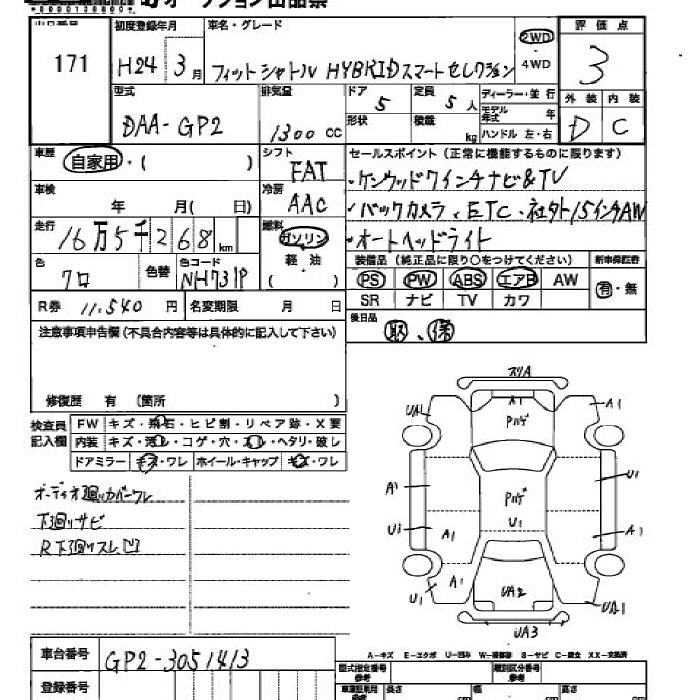 オークション出品票
出品番号 初度登録年月 車名・グレード 評価点
171 H24 3月 フィットシャトル HYBRIDスマートセレクション 2WD・4WD 3
型式 排気量 ドア 定員 ディーラー・並行 外装 内装
DAA-GP2 1300cc 5 5人 モデル年式 年 D C
形状 積載 kg ハンドル 左・右
車歴 シフト セールスポイント (正常に機能するものに限ります)
自家用・( ) FAT ・ケンウッド7インチナビ&TV
車検 冷房
年 月( 日) AAC ・バックカメラ、ETC、社外15インチAW
走行 燃料 ・オートヘッドライト
16万5千268km ガソリン
軽・油
( )
色 色替 色コード 装備品 (純正品に限り○をつけてください) 新車保証書
クロ NH731P PS PW ABS エアB AW 有・無
SR ナビ TV カワ
R券 11,540円 名変期限 月 日 後日品
取、保
注意事項申告欄(不具合内容等は具体的に記入して下さい)
修復歴 有 (箇所 )
検査員記入欄 FW キズ・飛石・ヒビ割・リペア跡・X要
内装 キズ・汚レ・コゲ・穴・スレ・ヘタリ・破レ
ドアミラー キズ・ワレ ホイール・キャップ キズ・ワレ
オーディオ廻りカバーワレ
下廻りサビ
R下廻りスレ凹
スリA
UA1 A1 A1
Pハゲ
A1 U1
Pハゲ
U1
U1 A1 A1
A1
U1 UA2 UA1
UA3
A-キズ E-エクボ U-凹み W-補修跡 S-サビ C-腐食 XX-交換済
車台番号 GP2-3051413 型式指定番号 参考 類別区分番号 参考
登録番号 車検証記載 参考 長さ cm 幅 cm 高さ cm